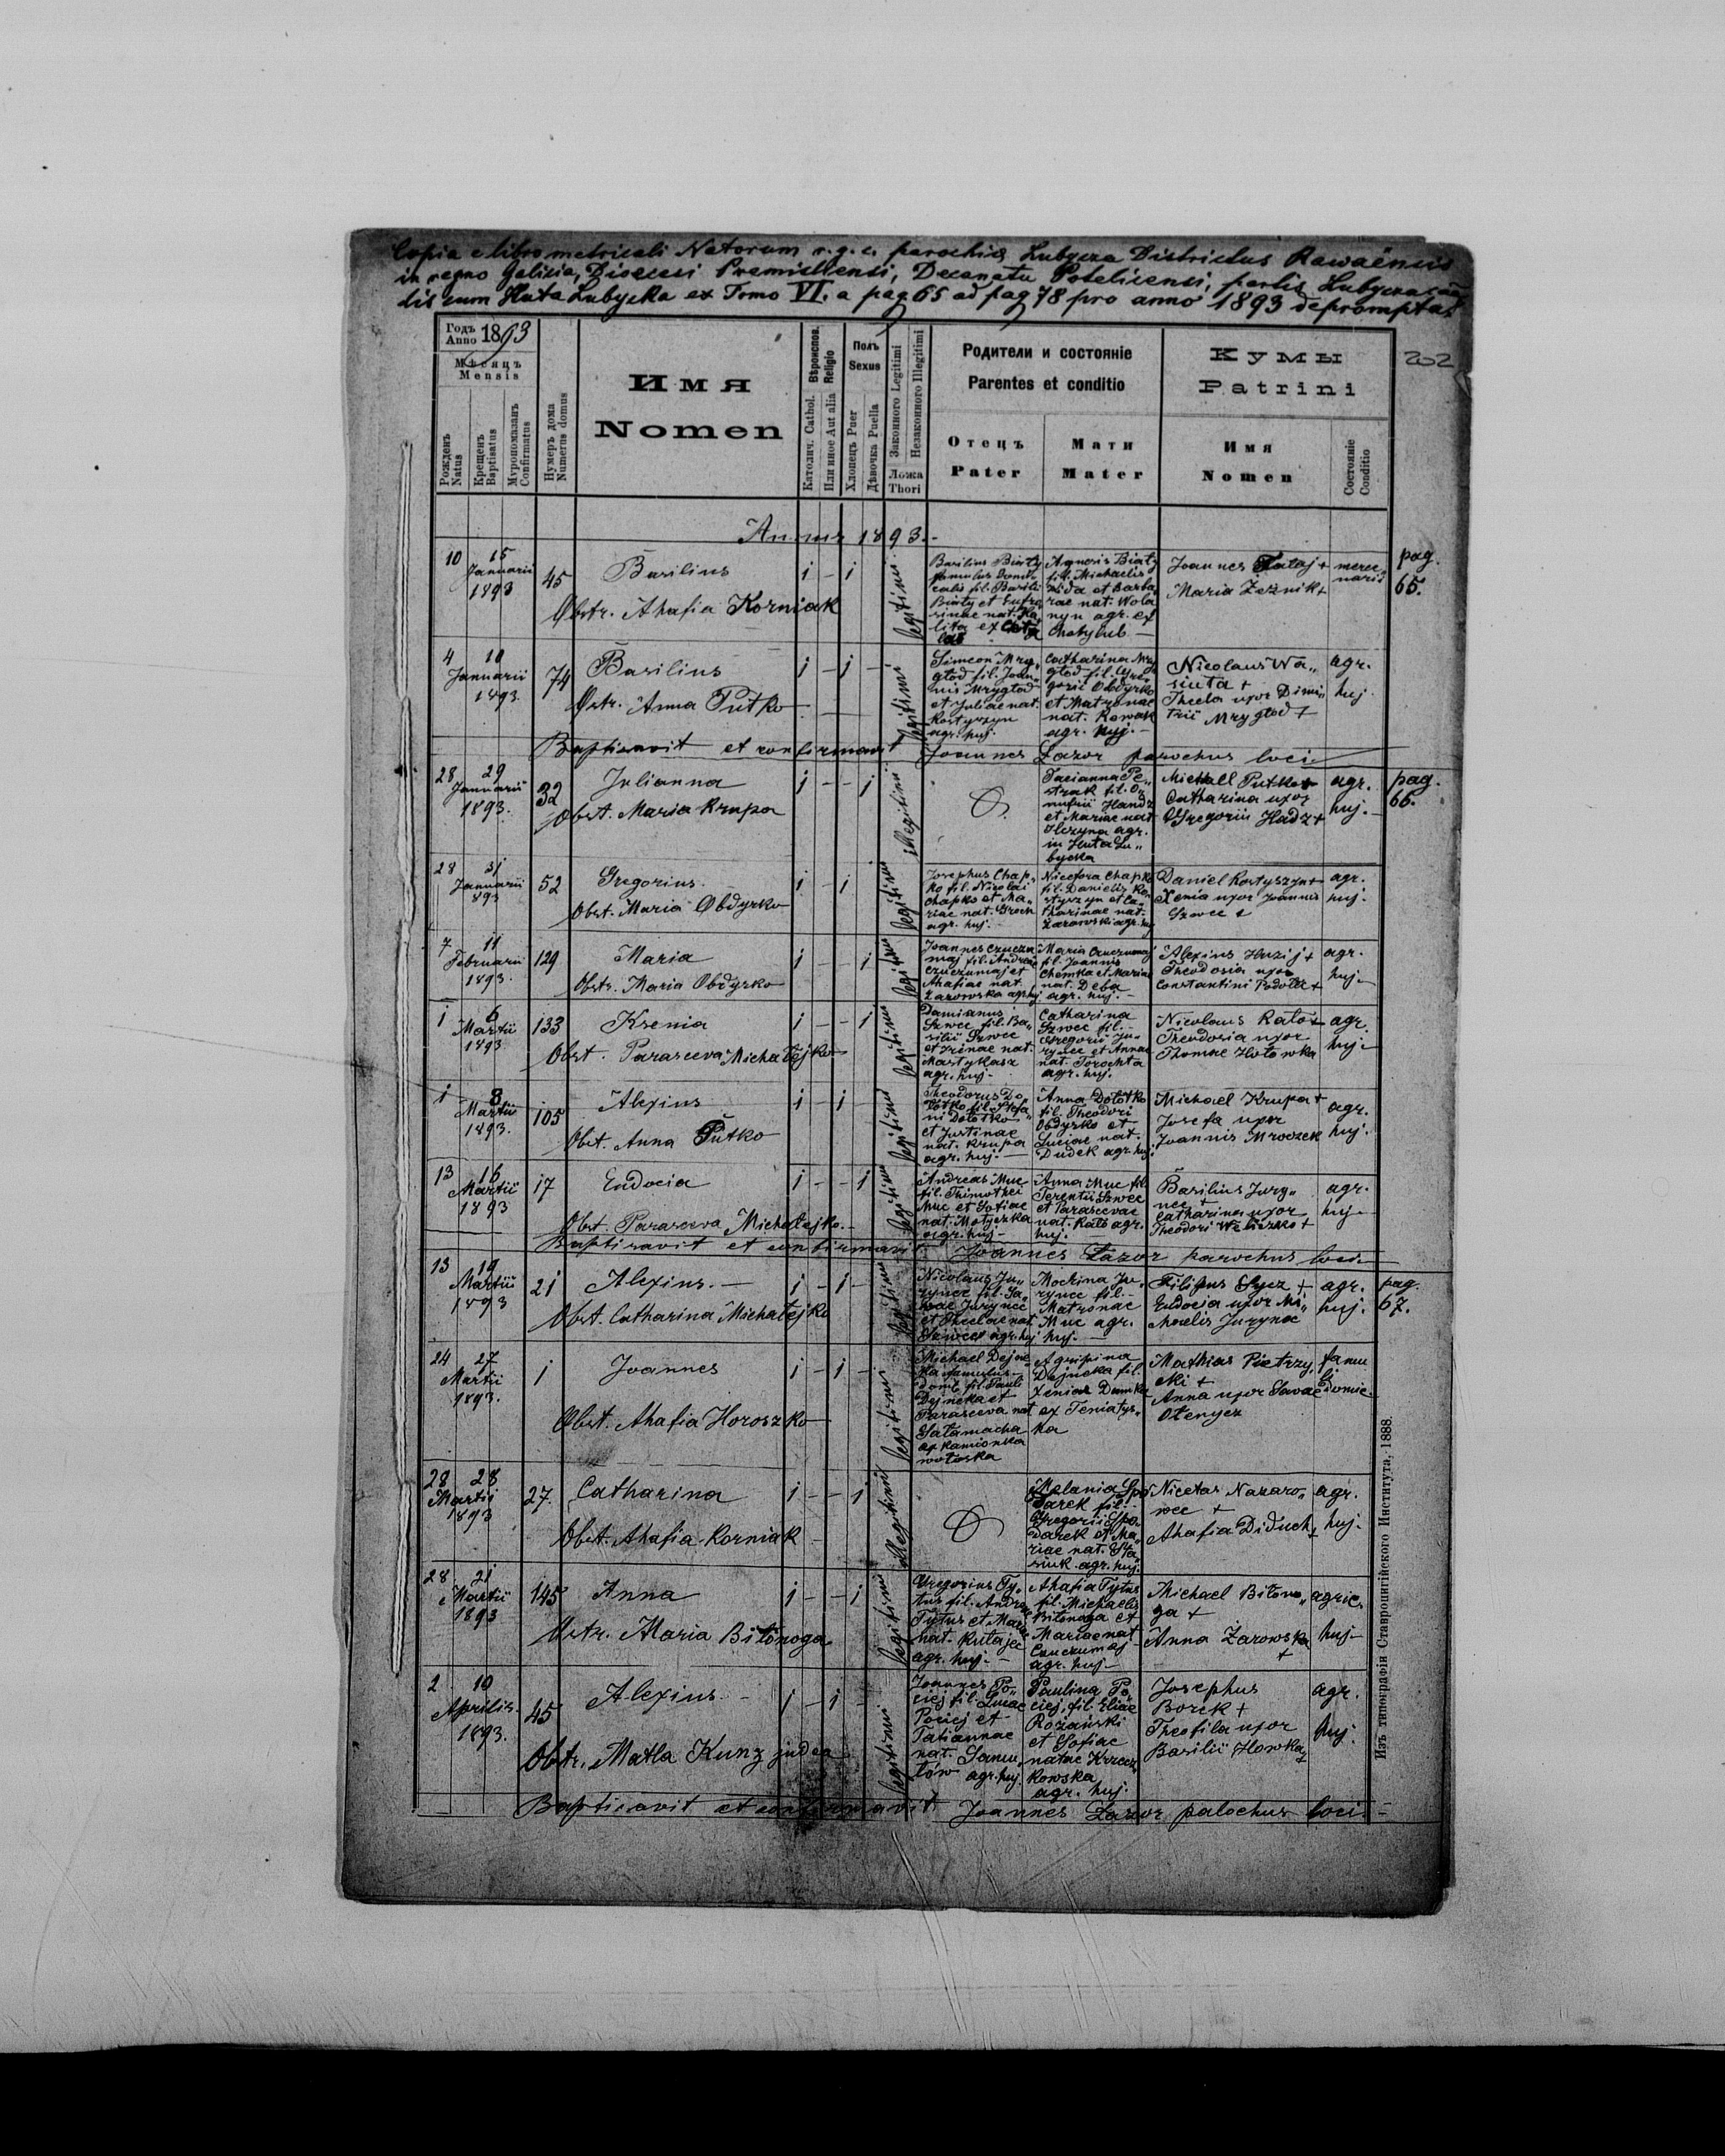 Copia e libro metricali Natorum r. g. c. parochiae Lubycza Districtus Rawaënsis
in regno Galicia, Dioecesi Premisliensi, Decanatu Potelicensi, partis Lubycza
lis cum Huta Lubycka ex Tomo VI. a pag 65 ad pag 78 pro anno 1893 deprompta.
202
Годъ
Anno 1893
Мѣсяцъ
Mensis
Рожденъ
Natus
Крещенъ
Baptisatus
Мѵропомазанъ
Confirmatus
Нумеръ дома
Numerus domus
Имя
Nomen
Вѣроиспов.
Religio
Католич. Cathol.
Или иное Aut alia
Полъ
Sexus
Хлопецъ Puer
Дѣвочка Puella
Законного Legitimi
Незаконного Illegitimi
Ложа
Thori
Родители и состоянiе
Parentes et conditio
Отецъ
Pater
Мати
Mater
Кумы
Patrini
Имя
Nomen
Состоянiе
Conditio
Annus 1893.-
10 15
Januarii
1893
45
Basilius
Obstr. Ahafia Korniak
i - i
legitimi
Basilius Biały
famulus domi
calis fil. Basili
Biały et Eufro
sinae nat. Ha
lita ex
Agnesis Biały
fil. Michaelis
et Barba
rae nat. Wola
nyn agr. ex
Chatylub -
Joannes Fataj +
Maria Zeznik +
merce
naris
pag.
65.
4 10
Januarii
1893.
74
Basilius
Obstr. Anna Putko
i - i -
legitimi
Simeon Mry„
głod fil. Joan„
nis Mrygłod
et Juliae nat.
Kostyszyn
agr. huj.
Catharina Mry
głod fil. Gre„
gorii Obdyrko
et Matronae
nat. Kowask
agr. huj. -
Nicolaus Wa„
siuta +
Thecla uxor Dimi„
trii Mrygłod +
agr.
huj.
Baptisavit et confirmavit Joannes Lazor parochus loci
28 29
Januarii
1893.
32
Julianna
Obst. Maria Krupa
i - - i
illegitimi
Tacianna Pe„
strak fil. O„
nufrii Handz
et Mariae nat
Hozyna agr.
in Huta Lu„
bycka
Michael Putko +
Catharina uxor
Gregorii Hadz +
agr.
huj. -
pag.
66.
28 31
Januarii
893
52
Gregorius
Obst. Maria Obdyrko
i - i
legitimi
Josephus Chap„
ko fil. Nicolai
Chapko et Ma„
riae nat. Groch
agr. huj.
Nicefora Chapko
fil. Danielis Ko„
styszyn et Ca„
tharinae nat.
Zarowski agr. huj
Daniel Kostyszyn +
Xenia uxor Joannis
Szwec +
agr.
huj.
7 11
Februarii
1893.
129
Maria
Obstr. Maria Obdyrko
i - - i
legitimi
Joannes Czuczu
maj fil. Andreae
Czuczumaj et
Ahafiae nat.
Zarowska agr huj
Maria Czuczumaj
fil. Joannis
Chomka et Mariae
nat. Deba
agr. huj. -
Alexius Huzij +
Theodosia uxor
Constantini Podola +
agr.
huj -
1 6
Martii
1893
133
Ksenia
Obst. Parasceva Michałejko
i - - i
legitimi
Damianus
Szwec fil. Ba„
silii Szwec
et Irenae nat.
Martyktasz
agr. huj.
Catharina
Szwec fil. -
Gregorii Ju„
rynec et Annae
nat. Torochta
agr. huj.
Nicolaus Rato +
Theodosia uxor
Thomae Hotowka
agr.
huj -
1 8
Martii
1893.
105
Alexius
Obst. Anna Putko
i - i
legitimi
Theodorus Do„
łotko fil. Stefa„
ni Dołotko
et Justinae
nat. Krupa
agr. huj. -
Anna Dołotko
fil. Theodori
Obdyrko et
Luciae nat.
Dudek agr. huj.
Michael Krupa +
Josefa uxor
Joannis Mroczek
agr.
huj.
13 16
Martii
1893
17
Eudocia
Obst. Parasceva Michałejko. -
i - - i
legitimi
Andreas Muc
fil. Thimothei
Muc et Sofiae
nat. Motyczka
agr. huj -
Anna Muc fil.
Terentii Szwec
et Parascevae
nat. Rato agr.
huj.
Basilius Jury„
nec +
Catharina uxor
Theodori Weliczko +
agr.
huj -
Baptisavit et confirmavit Joannes Lazor parochus loci
13 19
Martii
1893
21
Alexius. -
Obst. Catharina Michałejko
i - i -
legitimi
Nicolaus Ju„
rynec fil. Ja„
Jurynec
et Theclae nat
Szwec agr. huj
Mockina Ju„
rynec fil. -
Matronae
Muc agr.
huj. -
Filipus Gycz +
Eudocia uxor Mi„
chaelis Jurynec
agr.
huj.
pag.
67.
24 27
Martii
1893.
1
Joannes
Obst. Ahafia Horoszko
i - i -
legitimi
Michael Dejne
ka famulus
domi. fil. Pauli
Dejneka et
Parasceva nat
Sałamacha
ex Kamionka
wołoska
Agripina
Dejneka fil.
Xeniae Dumka
ex Teniatys„
ka
Mathias Pietrzy„
cki +
Anna uxor Savae
Otenycz
famu
li
domic.
28 28
Martii
1893
27.
Catharina
Obst. Ahafia Korniak
i - - i
illegitimi
Melania Spo
darek fil. -
Gregorii Spo„
darek et Ma„
riae nat. Sta„
siuk agr. huj.
Nicetas Nazaro„
wec +
Ahafia Diduch +
agr.
huj.
28 21
Martii
1893
145
Anna
Obstr. Maria Biłonoga
i - - i
legitimi
Gregorius Ty„
tus fil. Andreae
Tytus et Mariae
nat. Kutajec
agr. huj. -
Ahafia Tytus
fil. Michaelis
Biłonoga et
Mariae nat
Czuczumaj
agr. huj -
Michael Biłono„
ga +
Anna Zarowska
+
agric.
huj -
2 10
Aprilis
1893.
45
Alexius. -
Obstr. Matla Kunz judea
i - i -
legitimi
Joannes Po„
ciej fil. Lucae
Pociej et
Tatiannae
nat. Samu„
łow agr. huj.
Paulina Po„
ciej, fil. Eliae
Rożański
et Sofiae
natae Krzecz„
kowska
agr. huj.
Josephus
Borek +
Theofila uxor
Basilii Howka +
agr.
huj.
Baptisavit et confirmavit Joannes Lazor palochus loci -
Изъ типографiи Ставропигiйского Института, 1888.